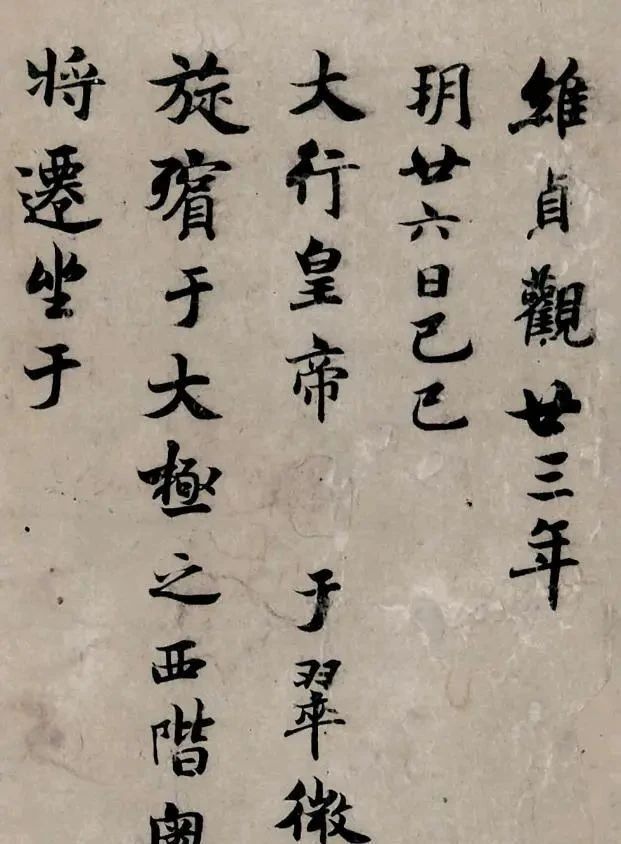 維貞觀廿三年
玥廿六日己巳
大行皇帝 于翠微
旋殯于大極之西階
將遷坐于